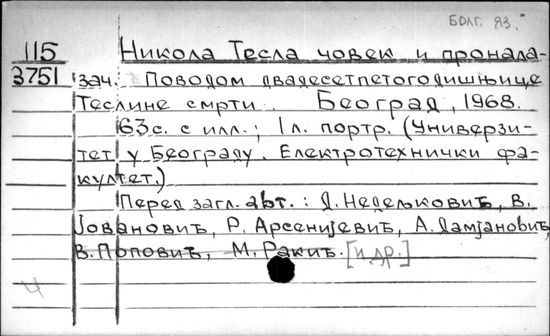 БОЛГ. ЯЗ.
115 Никола Тесла човек и пронала-
3751 зач. Поводом двадесетпетогодишњице
Теслине смрти. Београд, 1968.
63с. с илл.; 1л. портр. (Универзи-
тет у Београду. Електротехнички фа-
култет.)
Перед загл. авт.: Д. Недељковић, В.
Јовановић, Р. Арсенијевић, А. Дамјановић,
В. Поповић, М. Ракић. [и др.]
Ч